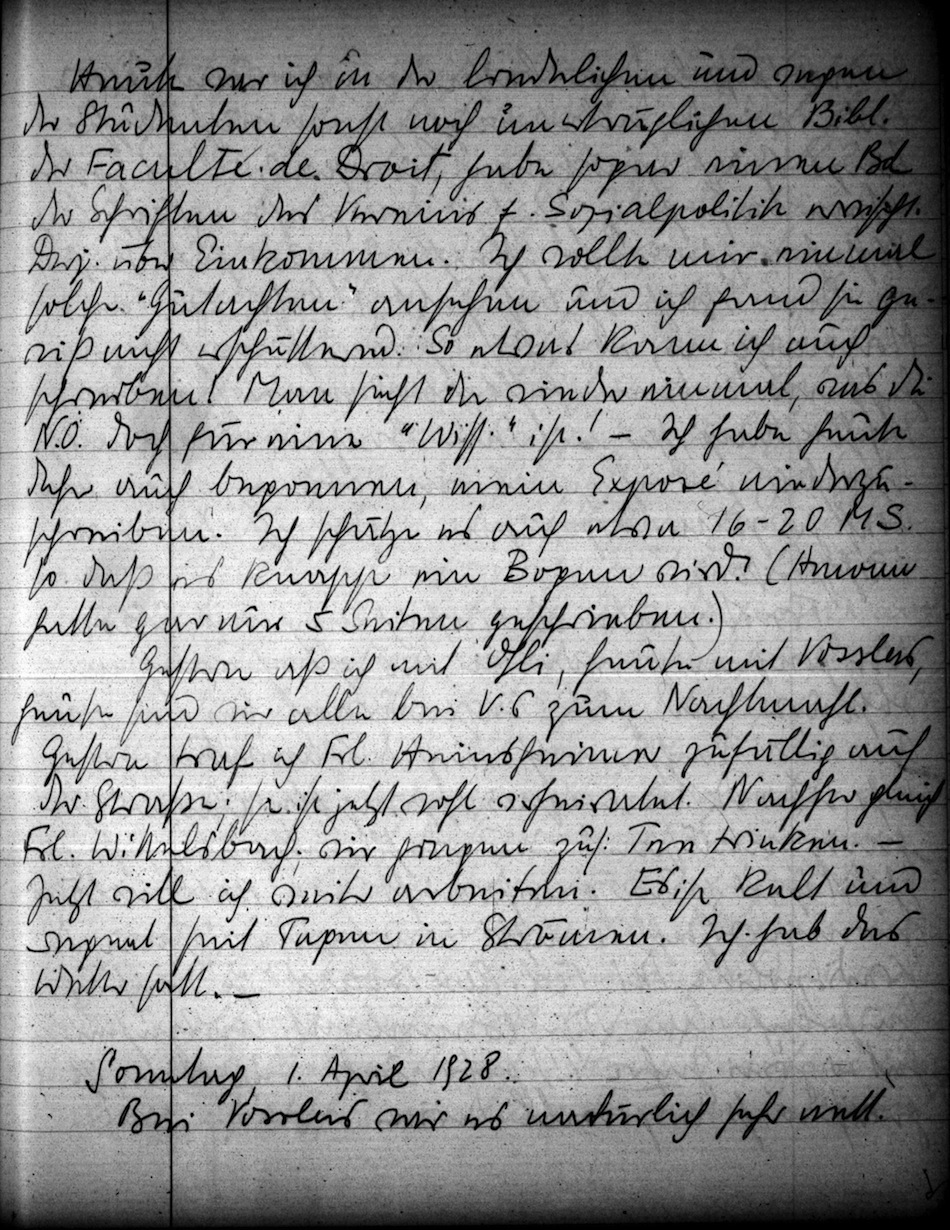 Heute war ich in der liederlichen und wegen
der Studenten sonst noch unerträglichen Bibl.
der Faculté de Droit, habe sogar einen Bd
der Schriften des Vereins f. Sozialpolitik erwischt.
Derj. über Einkommen. Ich wollte mir einmal
solche "Gutachten" ansehen und ich fand sie ge-
wiß nicht erschütternd. So etwas kann ich auch
schreiben! Man sieht da wieder einmal, was die
N.Ö. doch für eine "Wiss." ist! – Ich habe heute
daher auch begonnen, mein Exposé niederzu-
schreiben. Ich schätze es auf etwa 16-20 MS.
so daß es knapp ein Bogen wird! (
hatte gar nur 5 Seiten geschrieben.)
Gestern aß ich mit , heute mit Vosslers,
heute sind wir alle bei V.s zum Nachtmahl.
Gestern traf ich Frl. zufällig auf
der Straße; sie ist jetzt wohl verheiratet. Nachher gleich
Frl. Wittelsbach. wir gingen zus. Tee trinken. –
Jetzt will ich weiter arbeiten. Es ist kalt und
regnet seit Tagen in Strömen. Ich hab das
Wetter satt. –
Sonntag, 1. April 1928.
Bei Vosslers war es natürlich sehr nett.